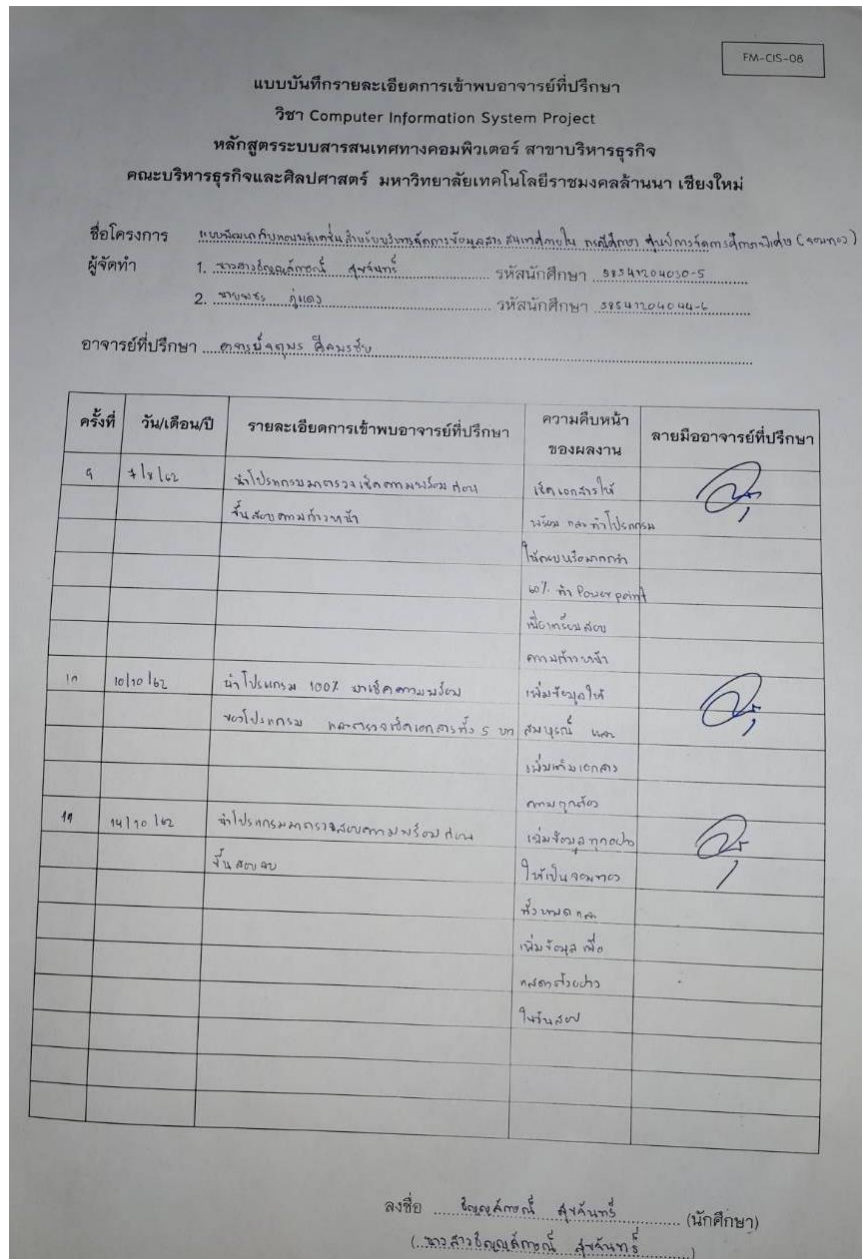 FM-CIS-08
แบบบันทึกรายละเอียดการเข้าพบอาจารย์ที่ปรึกษา
วิชา Computer Information System Project
หลักสูตรระบบสารสนเทศทางคอมพิวเตอร์ สาขาบริหารธุรกิจ
คณะบริหารธุรกิจและศิลปศาสตร์ มหาวิทยาลัยเทคโนโลยีราชมงคลล้านนา เชียงใหม่
ชื่อโครงการ สำหรับบริหารจัดการข้อมูลสารสนเทศภายใน กรณีศึกษา ศูนย์การจัดการศึกษาพิเศษ (จอมทอง)
ผู้จัดทำ 1. นางสาวธัญญลักษณ์ สุขจันทร์ รหัสนักศึกษา 58541204030-5
2. นาย รหัสนักศึกษา 58541204044-6
อาจารย์ที่ปรึกษา อาจารย์จตุพร
ครั้งที่ วัน/เดือน/ปี รายละเอียดการเข้าพบอาจารย์ที่ปรึกษา ความคืบหน้าของผลงาน ลายมืออาจารย์ที่ปรึกษา
9 7/8/62 นำโปรแกรมมาตรวจเช็คความพร้อมก่อน เช็คเอกสารให้
ขึ้นสอบความก้าวหน้า พร้อม และทำโปรแกรม
ให้ครบหรือมากกว่า
60% ทำ Power point
เพื่อเตรียมสอบ
ความก้าวหน้า
10 10/10/62 นำโปรแกรม 100% มาเช็คความพร้อม เพิ่มข้อมูลให้
ของโปรแกรม และตรวจเช็คเอกสารทั้ง 5 บท สมบูรณ์ และ
เพิ่มเติมเอกสาร
ความถูกต้อง
11 14/10/62 นำโปรแกรมมาตรวจสอบความพร้อมก่อน เพิ่มข้อมูลทุกอย่าง
ขึ้นสอบจบ ให้เป็นจอมทอง
ทั้งหมด และ
เพิ่มข้อมูล เพื่อ
แสดงตัวอย่าง
ในวันสอบ
ลงชื่อ ธัญญลักษณ์ สุขจันทร์ (นักศึกษา)
( นางสาวธัญญลักษณ์ สุขจันทร์ )